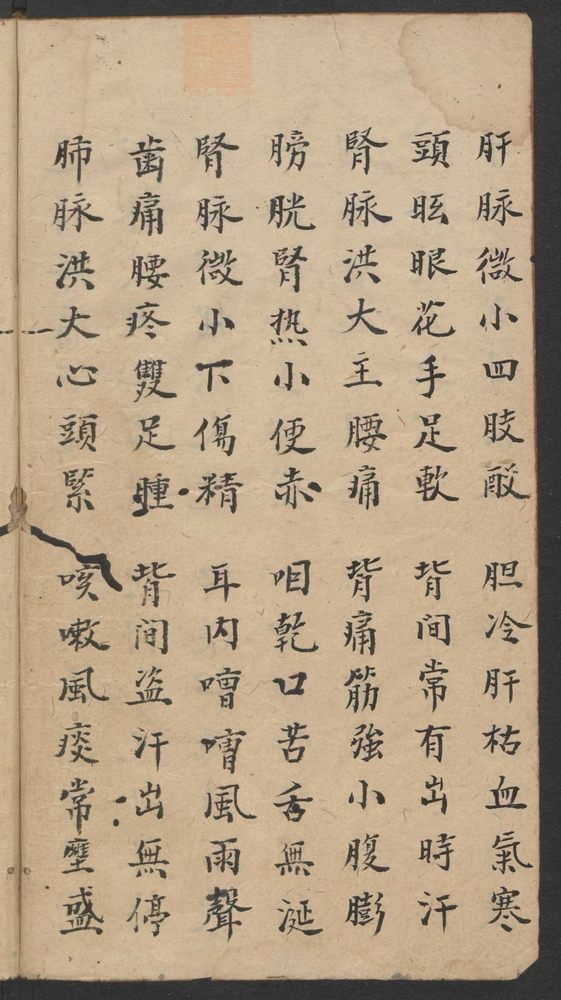 肝脉微小四肢酸 胆冷肝枯血氣寒
頭眩眼花手足軟 背间常有出時汗
腎脉洪大主腰痛 背痛筋強小腹膨
膀胱腎热小便赤 咽乾口苦舌無涎
腎脉微小下傷精 耳内嘈嘈風雨聲
歯痛腰疼雙足腫 背间盗汗出無停
肺脉洪大心頭緊 咳嗽風痰常壅盛